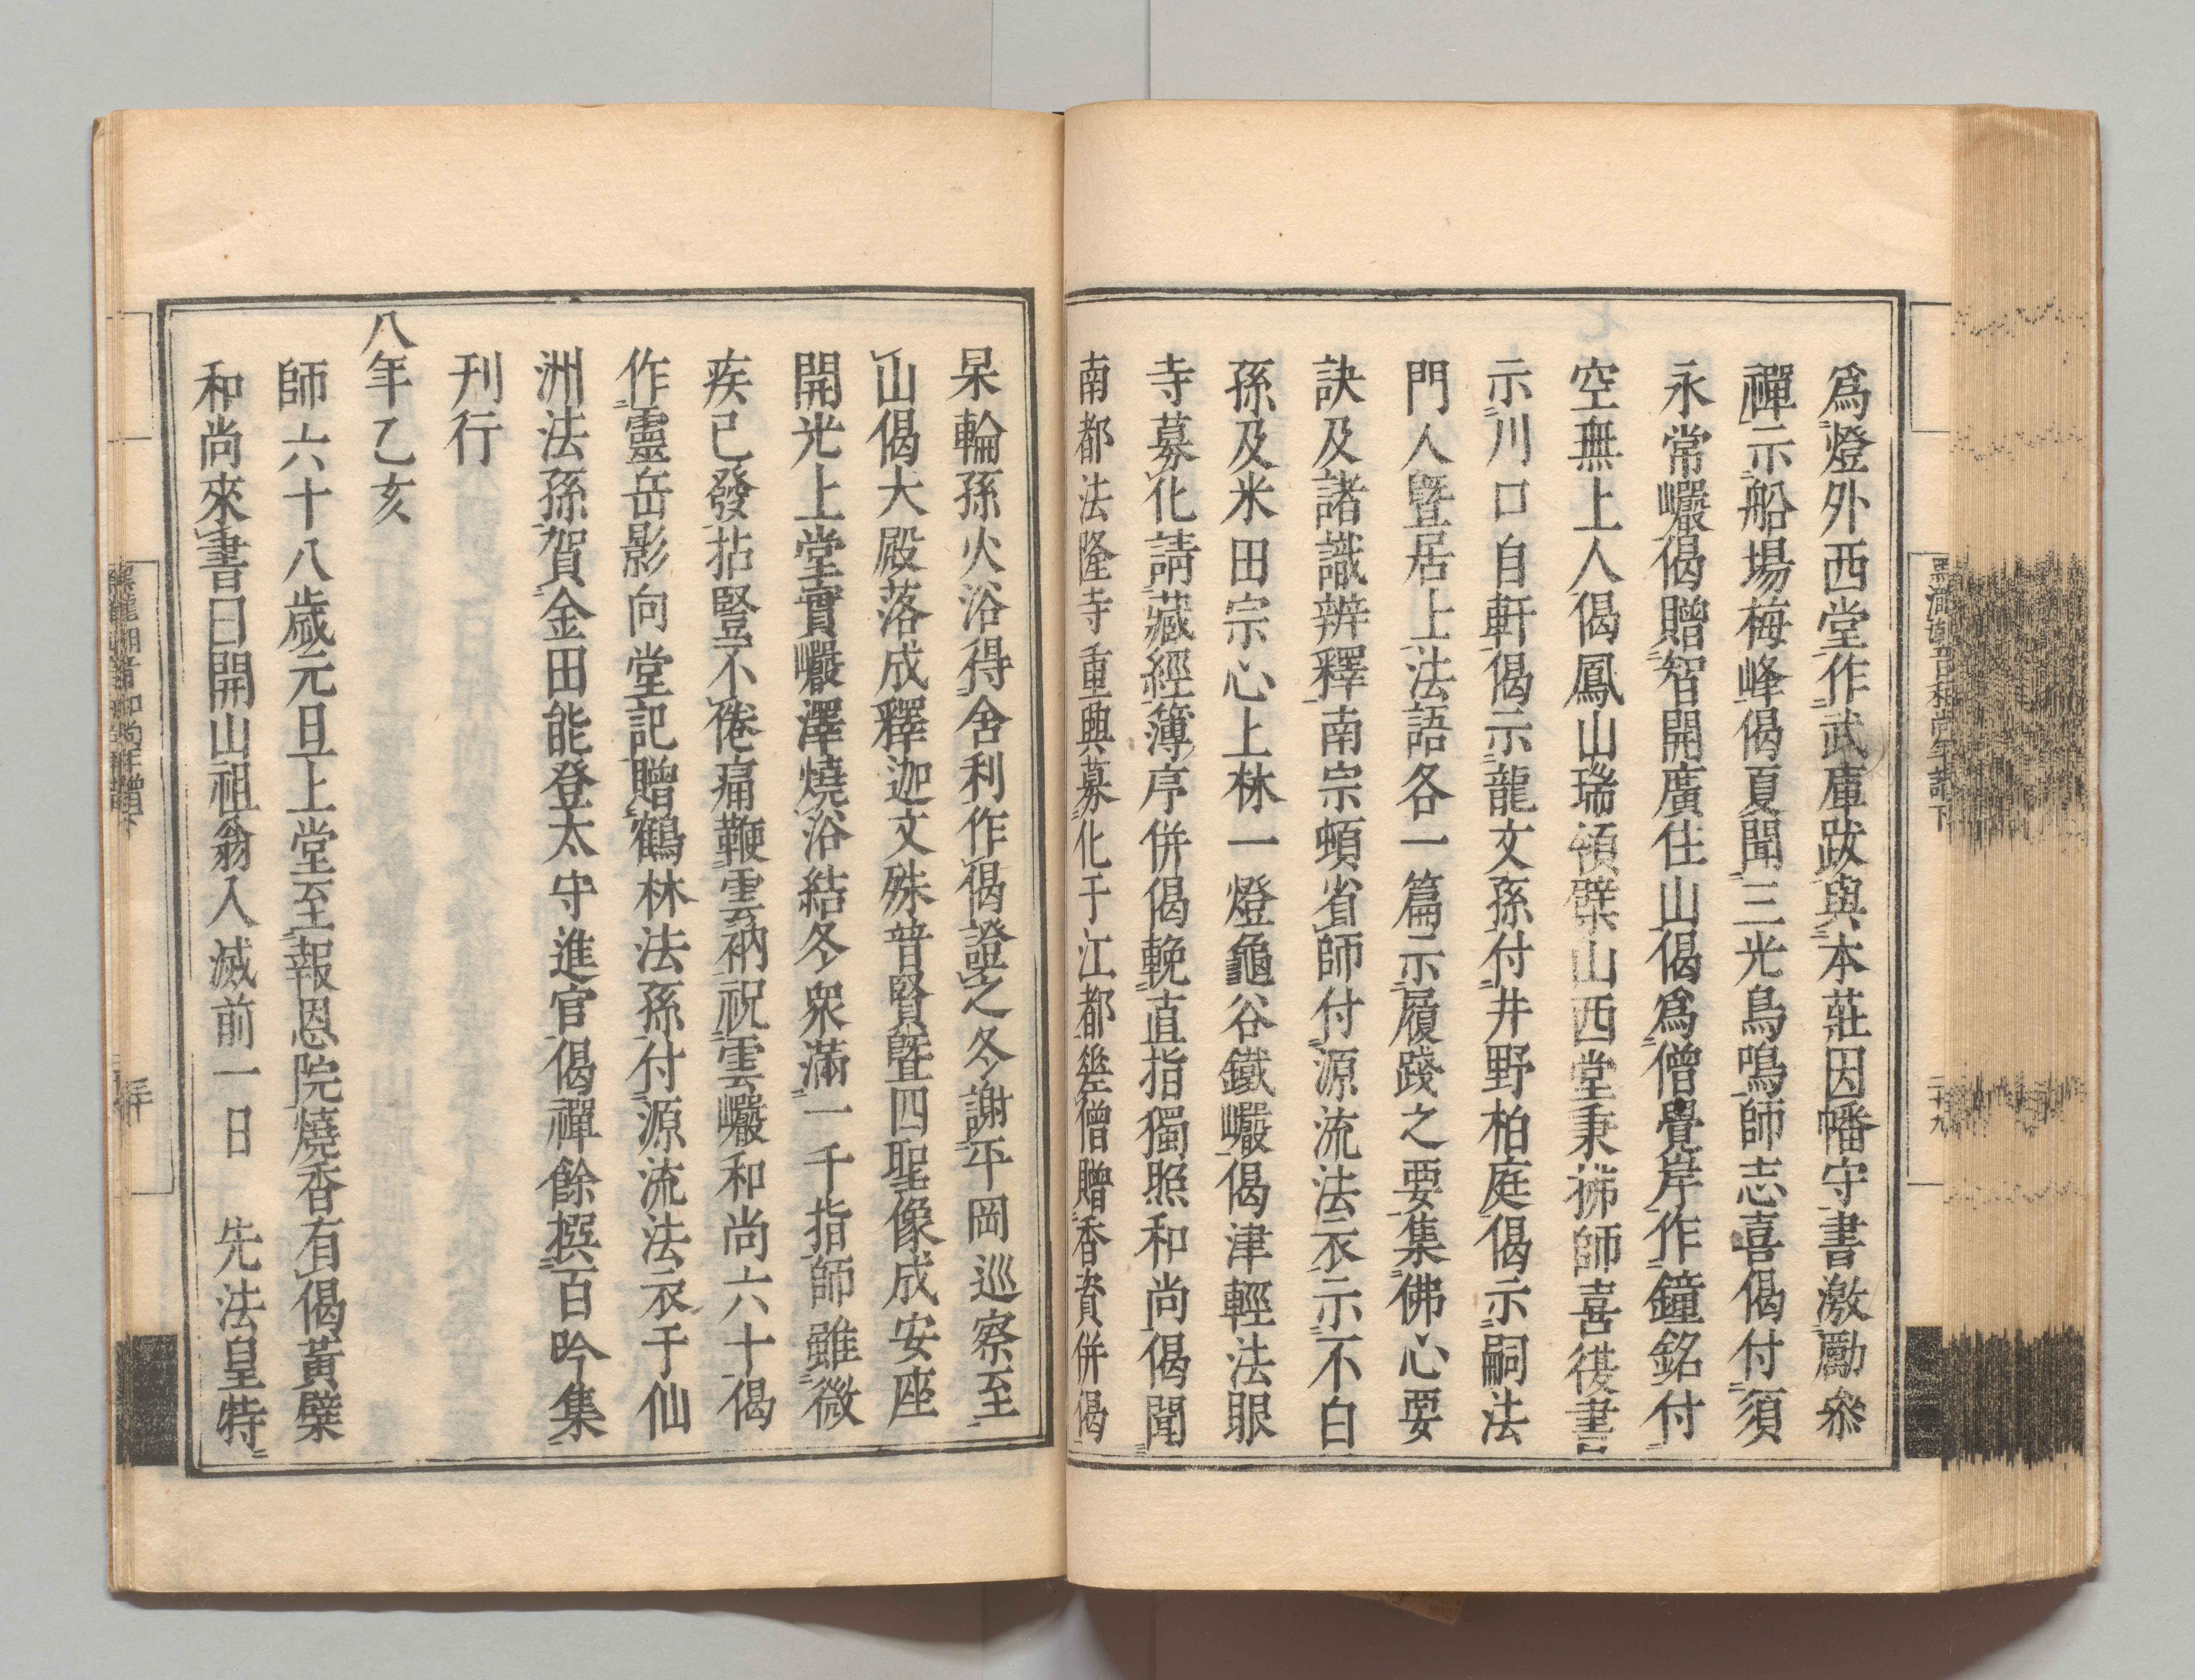 爲燈外西堂作武庫跋與本莊因幡守書激勵叅
禪示船場梅峰偈夏聞三光鳥鳴師志喜偈付須
永常巖偈贈智開廣住山偈爲僧覺岸作鐘銘付
空無上人偈鳳山瑞領檗山西堂秉拂師喜復書
示川口自軒偈示龍文孫付井野柏庭偈示嗣法
門人曁居士法語各一篇示履踐之要集佛心要
訣及諸識辨釋南宗頓省師付源流法衣示不白
孫及米田宗心上林一燈龜谷鐵巖偈津輕法眼
寺募化請藏經簿序併偈輓直指獨照和尚偈聞
南都法隆寺重興募化于江都㘴僧贈香資併偈
杲輪孫火浴得舍利作偈證之冬謝平岡巡察至
山偈大殿落成釋迦文殊普賢曁四聖像成安座
開光上堂實巖澤燒浴結冬衆滿一千指師雖微
疾已發拈竪不倦痛鞭雲衲祝雲巖和尚六十偈
作靈岳影向堂記贈鶴林法孫付源流法衣于仙
洲法孫賀金田能登太守進官偈禪餘撰百吟集
刊行
八年乙亥
師六十八歲元旦上堂至報恩院燒香有偈黃檗
和尚來書曰開山祖翁入滅前一日　先法皇特